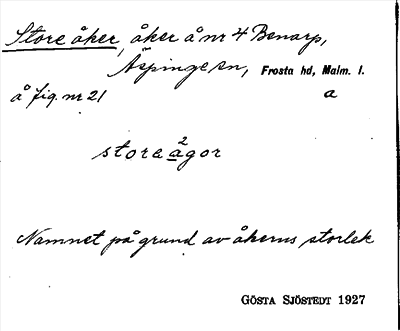 Store åker, åker å nr 4 Benarp,
Äspinge sn, Frosta hd, Malm. l.
å fig. nr 21 a
store ågor
2
Namnet på grund av åkerns storlek
GÖSTA SJÖSTEDT 1927